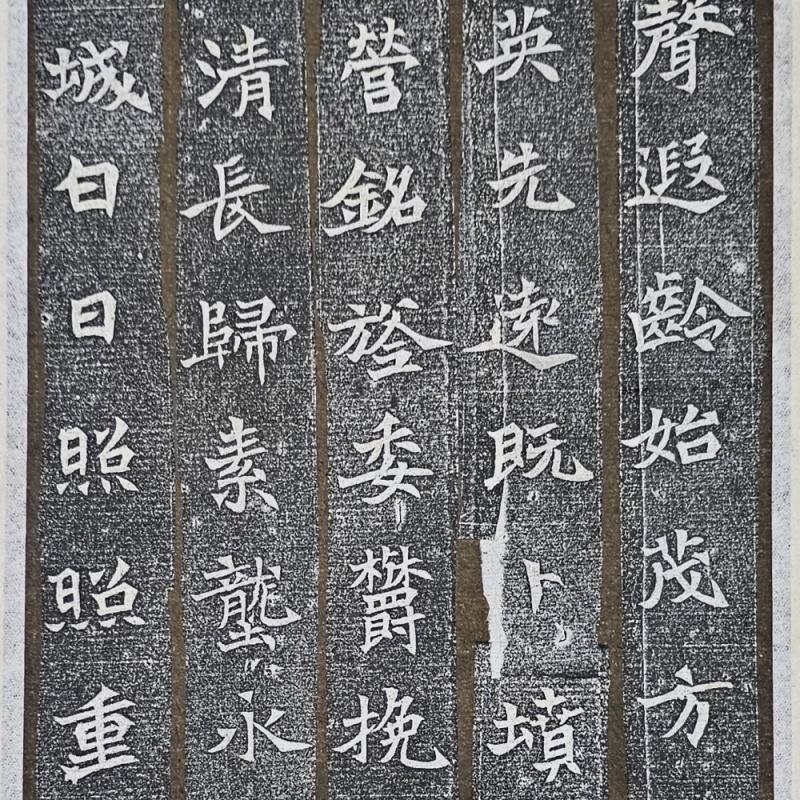 聲遐齡始茂方
英先遠既卜墳
營銘旌委欝挽
清長歸素壟永
城日日照照重